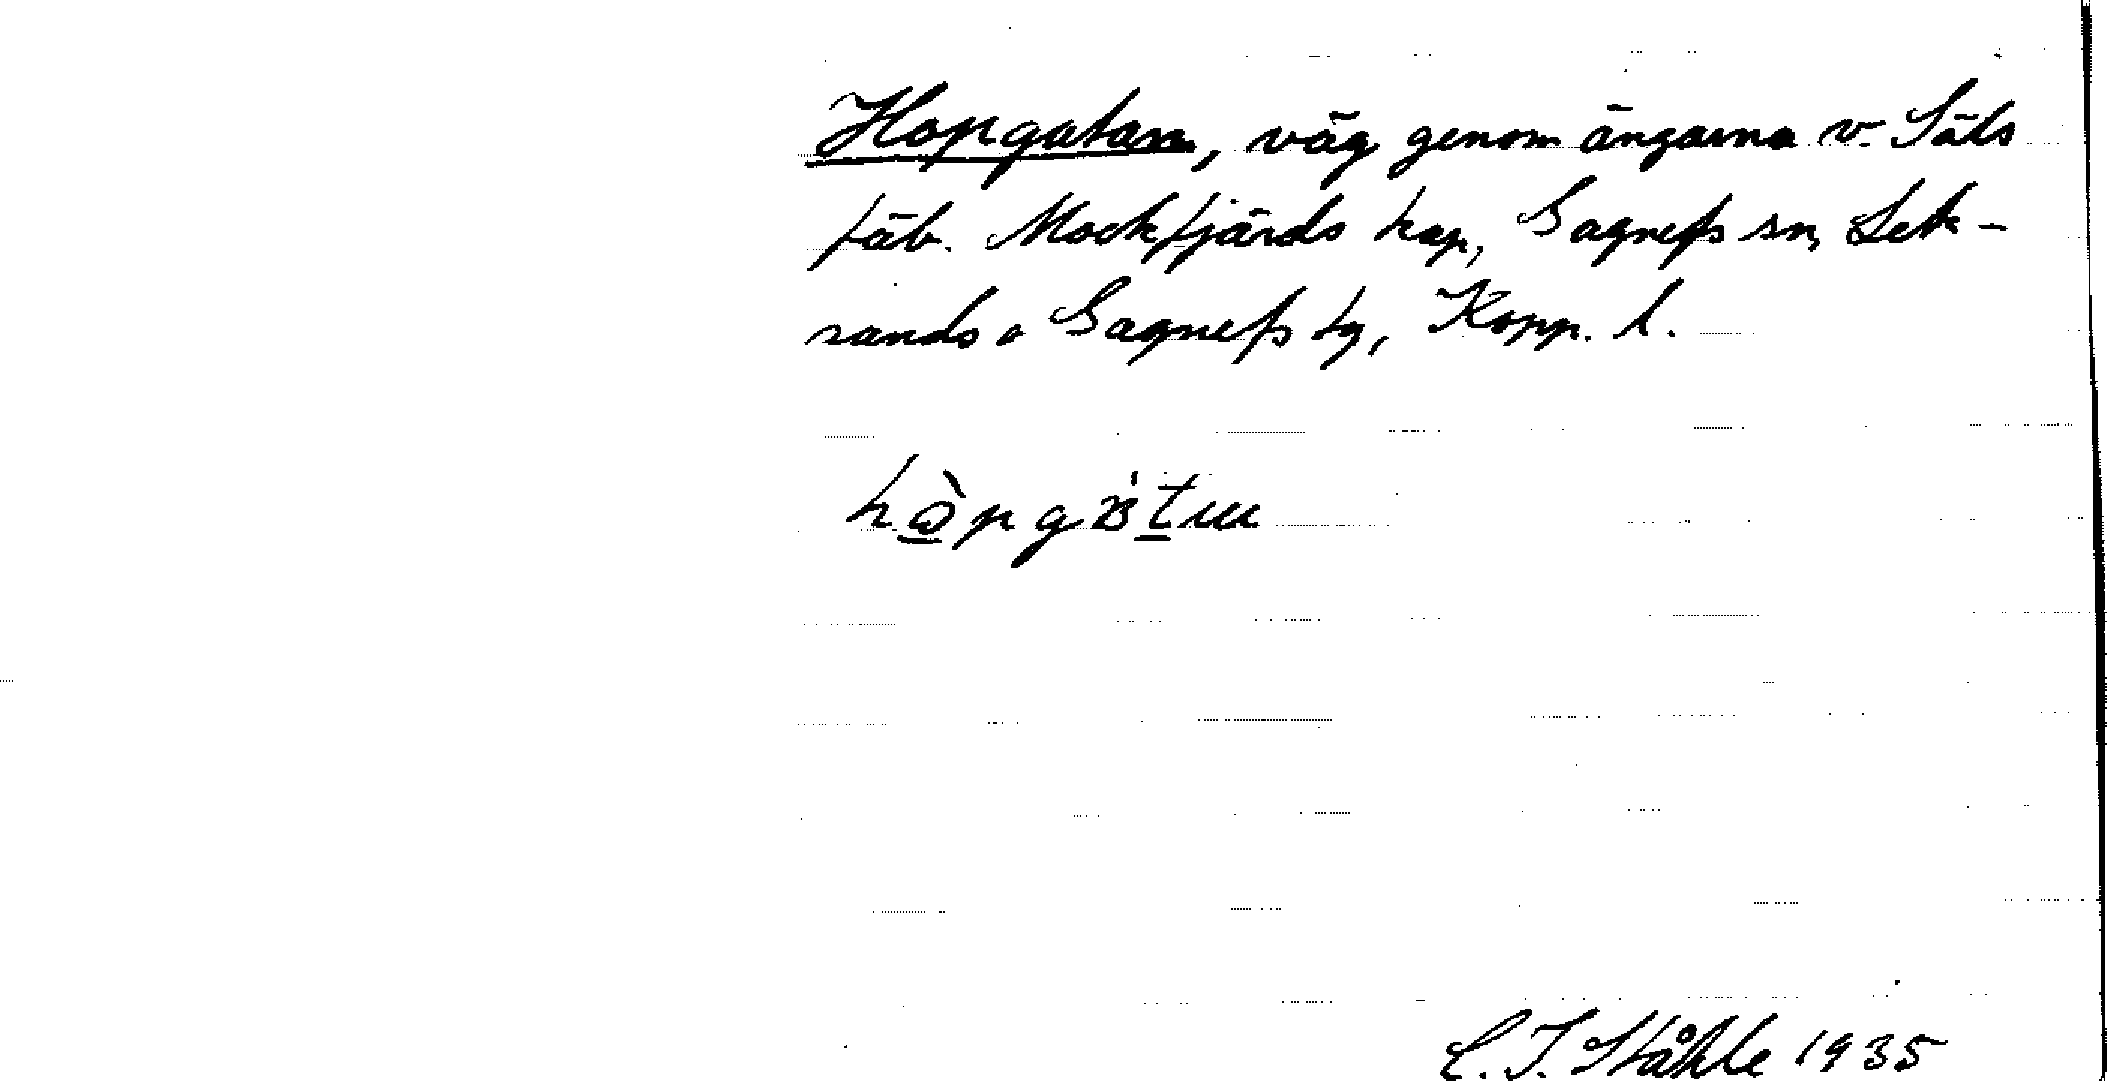 Hopgatan, väg genom ängarna v. Säls
fäb. Mockfjärds kap, Gagnefs sn, Lek-
sands o Gagnefs tg, Kopp. l.
C. I. Ståhle 1935